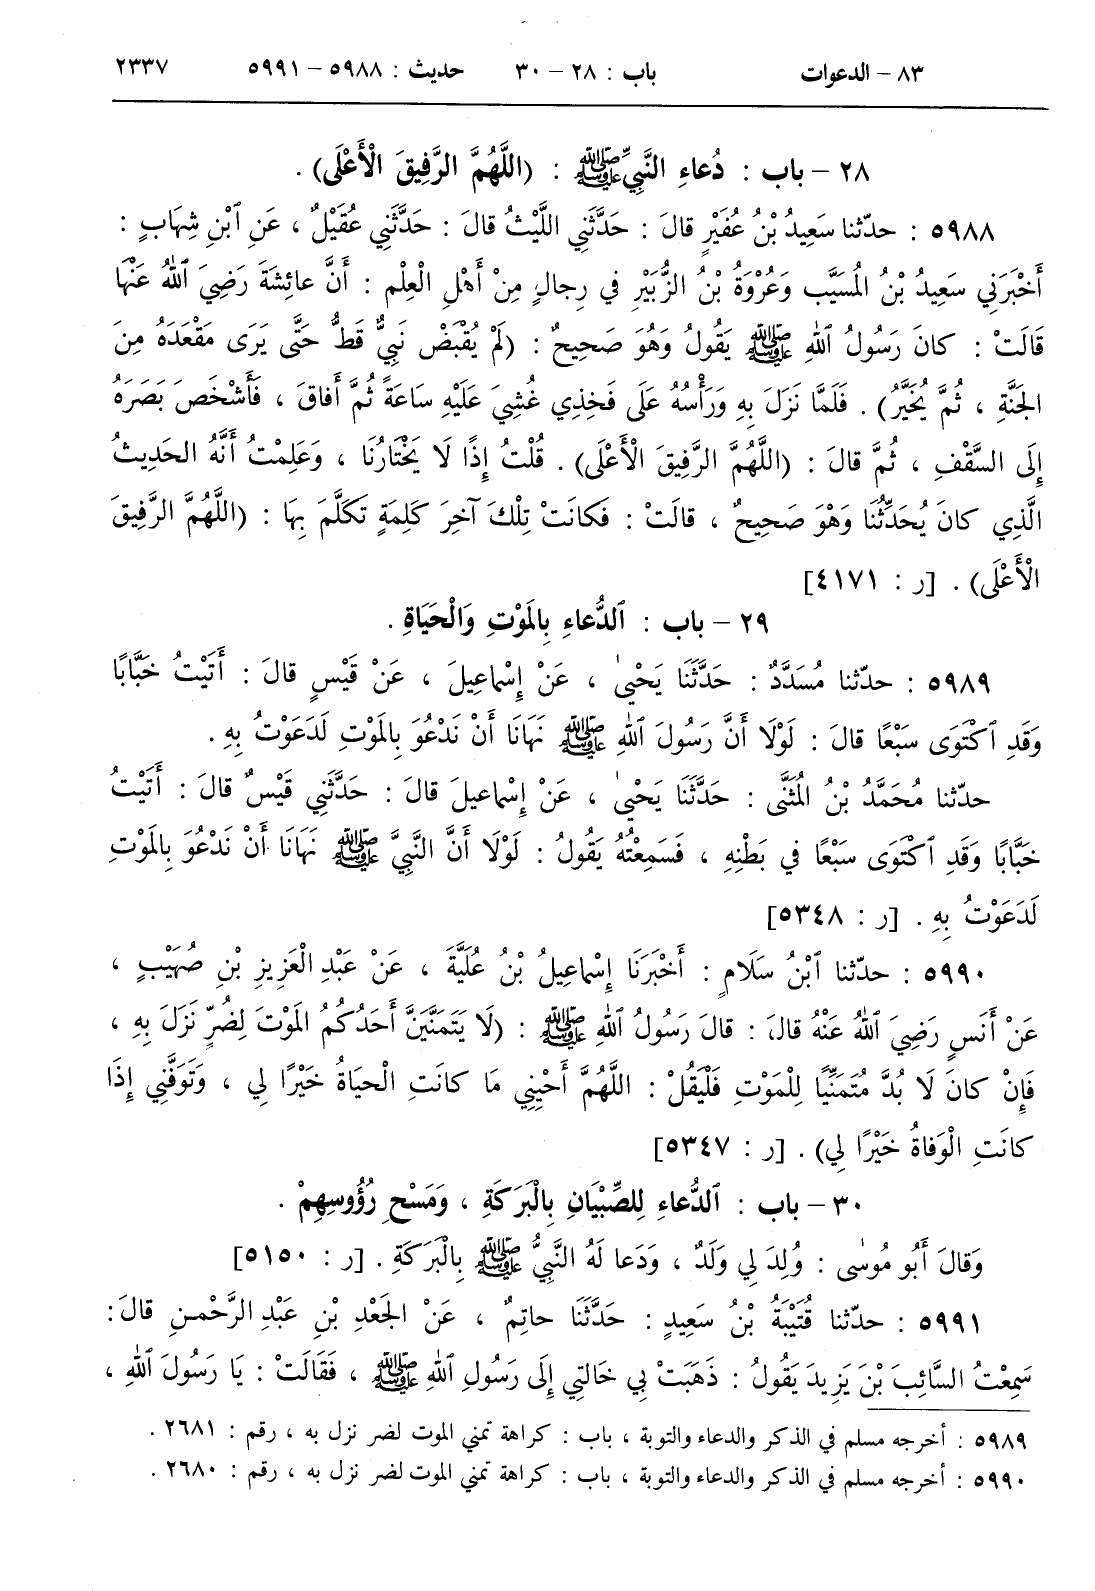 ٨٣ – الدعوات باب : ٢٨ – ٣٠ حديث : ٥٩٨٨ – ٥٩٩١ ٢٣٣٧
٢٨ – باب : دُعاءِ النَّبِيِّ ﷺ : (اللَّهُمَّ الرَّفِيقَ الْأَعْلَى) .
٥٩٨٨ : حدّثنا سَعِيدُ بْنُ عُفَيْرٍ قالَ : حَدَّثَنِي اللَّيْثُ قالَ : حَدَّثَنِي عُقَيْلٌ ، عَنِ ٱبْنِ شِهَابٍ :
أَخْبَرَنِي سَعِيدُ بْنُ الْمُسَيَّبِ وَعُرْوَةُ بْنُ الزُّبَيْرِ في رِجالٍ مِنْ أَهْلِ الْعِلْمِ : أَنَّ عائِشَةَ رَضِيَ ٱللهُ عَنْهَا
قَالَتْ : كانَ رَسُولُ ٱللهِ ﷺ يَقُولُ وَهُوَ صَحِيحٌ : (لَمْ يُقْبَضْ نَبِيٌّ قَطُّ حَتَّى يَرَى مَقْعَدَهُ مِنَ
الجَنَّةِ ، ثُمَّ يُخَيَّرُ) . فَلَمَّا نَزَلَ بِهِ وَرَأْسُهُ عَلَى فَخِذِي غُشِيَ عَلَيْهِ ساعَةً ثُمَّ أَفاقَ ، فَأَشْخَصَ بَصَرَهُ
إِلَى السَّقْفِ ، ثُمَّ قالَ : (اللَّهُمَّ الرَّفِيقَ الْأَعْلَى) . قُلْتُ إِذًا لَا يَخْتَارُنَا ، وَعَلِمْتُ أَنَّهُ الحَدِيثُ
الَّذِي كانَ يُحَدِّثُنَا وَهْوَ صَحِيحٌ ، قالَتْ : فَكانَتْ تِلْكَ آخِرَ كَلِمَةٍ تَكَلَّمَ بِهَا : (اللَّهُمَّ الرَّفِيقَ
الْأَعْلَى) . [ر : ٤١٧١]
٢٩ – باب : ٱلدُّعاءِ بِالمَوْتِ وَالْحَيَاةِ .
٥٩٨٩ : حدّثنا مُسَدَّدٌ : حَدَّثَنَا يَحْيىٰ ، عَنْ إِسْماعِيلَ ، عَنْ قَيْسٍ قالَ : أَتَيْتُ خَبَّابًا
وَقَدِ ٱكْتَوَى سَبْعًا قالَ : لَوْلَا أَنَّ رَسُولَ ٱللهِ ﷺ نَهَانَا أَنْ نَدْعُوَ بِالمَوْتِ لَدَعَوْتُ بِهِ .
حدّثنا مُحَمَّدُ بْنُ الْمُثَنَّى : حَدَّثَنَا يَحْيىٰ ، عَنْ إِسْماعِيلَ قالَ : حَدَّثَنِي قَيْسٌ قالَ : أَتَيْتُ
خَبَّابًا وَقَدِ ٱكْتَوَى سَبْعًا في بَطْنِهِ ، فَسَمِعْتُهُ يَقُولُ : لَوْلَا أَنَّ النَّبِيَّ ﷺ نَهَانَا أَنْ نَدْعُوَ بِالمَوْتِ
لَدَعَوْتُ بِهِ . [ر : ٥٣٤٨]
٥٩٩٠ : حدّثنا ٱبْنُ سَلَامٍ : أَخْبَرَنَا إِسْماعِيلُ بْنُ عُلَيَّةَ ، عَنْ عَبْدِ الْعَزِيزِ بْنِ صُهَيْبٍ ،
عَنْ أَنَسٍ رَضِيَ ٱللهُ عَنْهُ قالَ : قالَ رَسُولُ ٱللهِ ﷺ : (لَا يَتَمَنَّيَنَّ أَحَدُكُمُ المَوْتَ لِضُرٍّ نَزَلَ بِهِ ،
فَإِنْ كانَ لَا بُدَّ مُتَمَنِّيًا لِلْمَوْتِ فَلْيَقُلْ : اللَّهُمَّ أَحْيِنِي مَا كانَتِ الْحَيَاةُ خَيْرًا لِي ، وَتَوَفَّنِي إِذَا
كانَتِ الْوَفاةُ خَيْرًا لِي) . [ر : ٥٣٤٧]
٣٠ – باب : ٱلدُّعاءِ لِلصِّبْيَانِ بِالْبَرَكَةِ ، وَمَسْحِ رُؤُوسِهِمْ .
وَقالَ أَبُو مُوسٰى : وُلِدَ لِي وَلَدٌ ، وَدَعا لَهُ النَّبِيُّ ﷺ بِالْبَرَكَةِ . [ر : ٥١٥٠]
٥٩٩١ : حدّثنا قُتَيْبَةُ بْنُ سَعِيدٍ : حَدَّثَنَا حاتِمٌ ، عَنْ الجَعْدِ بْنِ عَبْدِ الرَّحْمٰنِ قالَ :
سَمِعْتُ السَّائِبَ بْنَ يَزِيدَ يَقُولُ : ذَهَبَتْ بِي خالَتِي إِلَى رَسُولِ ٱللهِ ﷺ ، فَقَالَتْ : يَا رَسُولَ ٱللهِ ،
٥٩٨٩ : أخرجه مسلم في الذكر والدعاء والتوبة ، باب : كراهة تمني الموت لضر نزل به ، رقم : ٢٦٨١ .
٥٩٩٠ : أخرجه مسلم في الذكر والدعاء والتوبة ، باب : كراهة تمني الموت لضر نزل به ، رقم : ٢٦٨٠ .